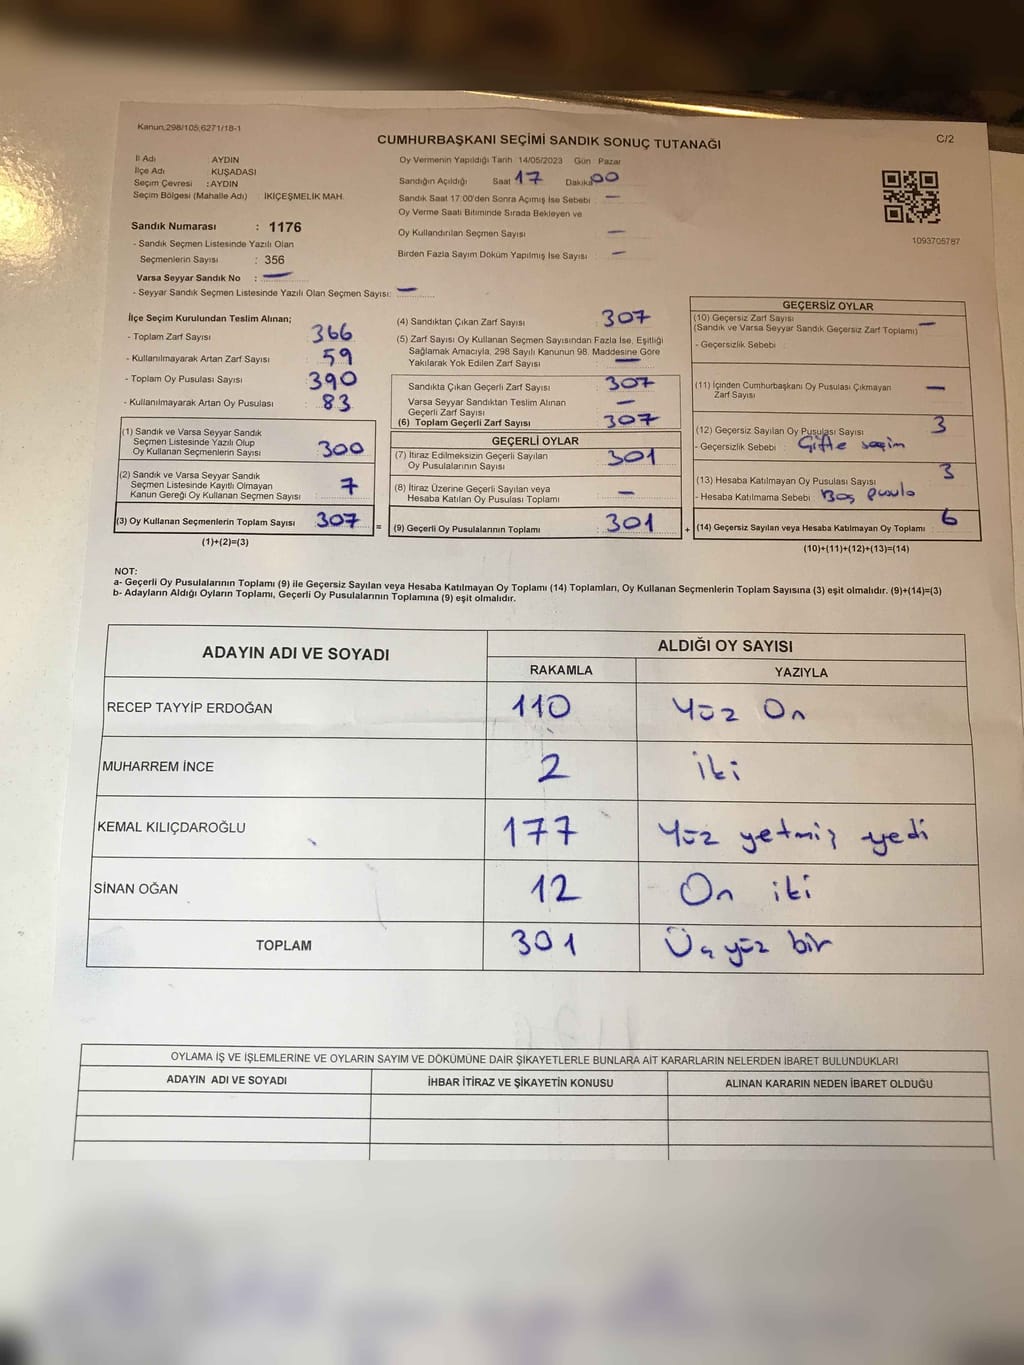 Kanun,298/105,6271/18-1
CUMHURBAŞKANI SEÇİMİ SANDIK SONUÇ TUTANAĞI
C/2
İl Adı AYDIN
İlçe Adı KUŞADASI
Seçim Çevresi :AYDIN
Seçim Bölgesi (Mahalle Adı) İKİÇEŞMELİK MAH.
Sandık Numarası : 1176
- Sandık Seçmen Listesinde Yazılı Olan
Seçmenlerin Sayısı : 356
Varsa Seyyar Sandık No : —
- Seyyar Sandık Seçmen Listesinde Yazılı Olan Seçmen Sayısı: —
Oy Vermenin Yapıldığı Tarih 14/05/2023 Gün Pazar
Sandığın Açıldığı Saat 17 Dakika 00
Sandık Saat 17:00'den Sonra Açımış İse Sebebi : —
Oy Verme Saati Bitiminde Sırada Bekleyen ve
Oy Kullandırılan Seçmen Sayısı —
Birden Fazla Sayım Döküm Yapılmış İse Sayısı : —
1093705787
İlçe Seçim Kurulundan Teslim Alınan;
- Toplam Zarf Sayısı 366
- Kullanılmayarak Artan Zarf Sayısı : 59
- Toplam Oy Pusulası Sayısı 390
- Kullanılmayarak Artan Oy Pusulası : 83
(1) Sandık ve Varsa Seyyar Sandık
Seçmen Listesinde Yazılı Olup
Oy Kullanan Seçmenlerin Sayısı : 300
(2) Sandık ve Varsa Seyyar Sandık
Seçmen Listesinde Kayıtlı Olmayan
Kanun Gereği Oy Kullanan Seçmen Sayısı : 7
(3) Oy Kullanan Seçmenlerin Toplam Sayısı : 307 =
(1)+(2)=(3)
(4) Sandıktan Çıkan Zarf Sayısı : 307
(5) Zarf Sayısı Oy Kullanan Seçmen Sayısından Fazla İse, Eşitliği
Sağlamak Amacıyla, 298 Sayılı Kanunun 98. Maddesine Göre
Yakılarak Yok Edilen Zarf Sayısı : —
Sandıkta Çıkan Geçerli Zarf Sayısı : 307
Varsa Seyyar Sandıktan Teslim Alınan
Geçerli Zarf Sayısı : —
(6) Toplam Geçerli Zarf Sayısı : 307
GEÇERLİ OYLAR
(7) İtiraz Edilmeksizin Geçerli Sayılan
Oy Pusulalarının Sayısı : 301
(8) İtiraz Üzerine Geçerli Sayılan veya
Hesaba Katılan Oy Pusulası Toplamı : —
(9) Geçerli Oy Pusulalarının Toplamı : 301 +
GEÇERSİZ OYLAR
(10) Geçersiz Zarf Sayısı
(Sandık ve Varsa Seyyar Sandık Geçersiz Zarf Toplamı) —
- Geçersizlik Sebebi :
(11) İçinden Cumhurbaşkanı Oy Pusulası Çıkmayan
Zarf Sayısı —
(12) Geçersiz Sayılan Oy Pusulası Sayısı 3
- Geçersizlik Sebebi Çifte seçim
(13) Hesaba Katılmayan Oy Pusulası Sayısı 3
- Hesaba Katılmama Sebebi : Boş pusula
(14) Geçersiz Sayılan veya Hesaba Katılmayan Oy Toplamı : 6
(10)+(11)+(12)+(13)=(14)
NOT:
a- Geçerli Oy Pusulalarının Toplamı (9) ile Geçersiz Sayılan veya Hesaba Katılmayan Oy Toplamı (14) Toplamları, Oy Kullanan Seçmenlerin Toplam Sayısına (3) eşit olmalıdır. (9)+(14)=(3)
b- Adayların Aldığı Oyların Toplamı, Geçerli Oy Pusulalarının Toplamına (9) eşit olmalıdır.
ADAYIN ADI VE SOYADI ALDIĞI OY SAYISI
RAKAMLA YAZIYLA
RECEP TAYYİP ERDOĞAN 110 Yüz On
MUHARREM İNCE 2 İki
KEMAL KILIÇDAROĞLU 177 Yüz yetmiş yedi
SİNAN OĞAN 12 On iki
TOPLAM 301 Üç yüz bir
OYLAMA İŞ VE İŞLEMLERİNE VE OYLARIN SAYIM VE DÖKÜMÜNE DAİR ŞİKAYETLERLE BUNLARA AİT KARARLARIN NELERDEN İBARET BULUNDUKLARI
ADAYIN ADI VE SOYADI İHBAR İTİRAZ VE ŞİKAYETİN KONUSU ALINAN KARARIN NEDEN İBARET OLDUĞU